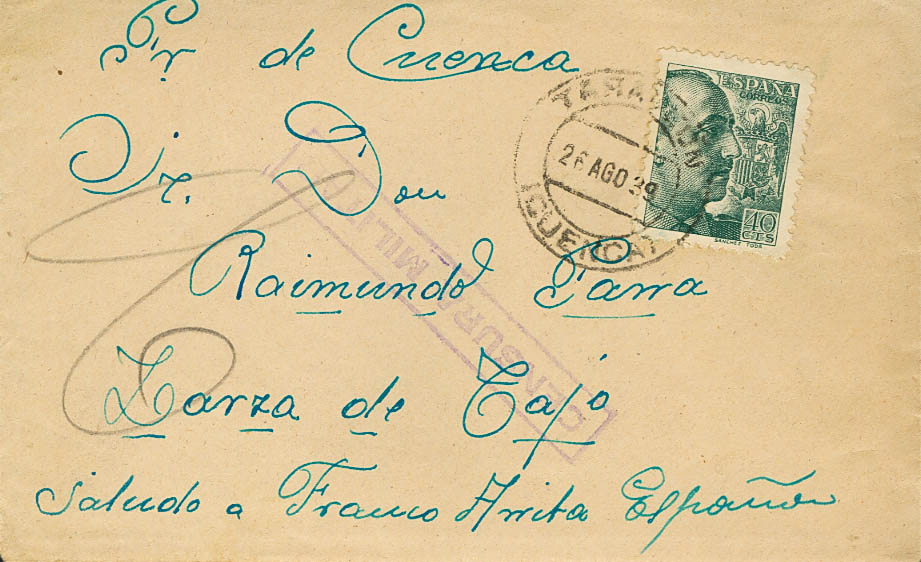 Pr de Cuenca
Sr. Don
Raimundo Parra
Zarza de Tajo
Saludo a Franco Arriba España
ESPAÑA
CORREOS
40
CTS
SANCHEZ TODA
26 AGO 39
(CUENCA)
CENSURA MILITAR